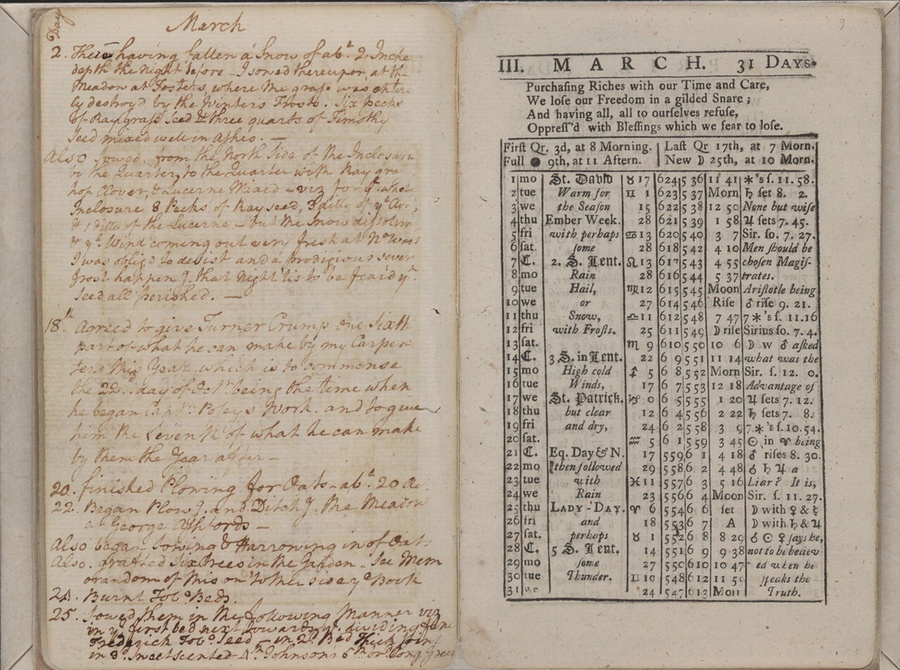 March
Day
2. There having fallen a Snow of abt. 2 Inche
depth the Night before I sowed thereupon at the
Meadow at Fosters, where the grass was entire
ly destroyd by the Winters Frosts. Six pecks
of Ray grass Seed & three quarts of Timothy
Seed mixed well in Ashes. —
Also sowed, from the North Side of the Inclosure
in the Quarter, to the Quarter with Ray gra
hop Clover, & Lucerne Mixed — viz for ye. whole
Inclosure 8 Pecks of Ray seed, ditto of ye.
of the Lucerne — but the Snow dissolvin
& ye. Wind coming out very fresh at No. West
I was obligd to desist and a prodigious sever
frost happeng. that Night tis to be feard ye.
Seed all perished. —
18th. Agreed to give Turner Crump one Sixth
part of what he can make by my Carpen
ters this Year which is to commense
the 22d. day of Octr. being the time when
he began Captn. Poseys Work. and to give
him the Seventh of what he can make
by them the Year after —
20. finished Plowing for Oats — abt. 20 Ac
22. Began Plowg. and Ditchg. the Meadow
at George Ashfords —
Also began Sowing & Harrowing in of Oats
Also. grafted Six Trees in the Garden — See Mem
orandom of this on tother side ye Book
24. Burnt Tobo. Beds.
25. Sowed them in the following Manner viz
in ye. first bed next towards dividing fence
Frederick Tobo. Seed — in 2d Bed thick joint
in 3d. Sweet scented 4th. Johnson's 5th or Long Green
3
III. MARCH. 31 Days.
Purchasing Riches with our Time and Care,
We lose our Freedom in a gilded Snare;
And having all, all to ourselves refuse,
Oppress'd with Blessings which we fear to lose.
First Qr. 3d, at 8 Morning. Last Qr 17th, at 7 Morn.
Full ● 9th, at 11 Aftern. New ☽ 25th, at 10 Morn.
1 mo St. David ♉ 17 6 24 5 36 11 41 *'s s. 11. 58.
2 tue Warm for ♊ 1 6 23 5 37 Morn ♄ set 8. 2.
3 we the Season 15 6 22 5 38 12 50 None but wise
4 thu Ember Week. 28 6 21 5 39 1 58 ♃ sets 7. 45.
5 fri with perhaps ♋ 13 6 20 5 40 3 7 Sir. so. 7. 27.
6 sat. some 28 6 18 5 42 4 10 Men should be
7 C. 2. S. Lent. ♌ 13 6 17 5 43 4 55 chosen Magis-
8 mo Rain 28 6 16 5 44 5 37 trates.
9 tue Hail, ♍ 12 6 15 5 45 Moon Aristotle being
10 we or 27 6 14 5 46 Rise ♂ rise 9. 21.
11 thu Snow, ♎ 11 6 12 5 48 7 47 7 *'s s. 11.16
12 fri with Frosts. 25 6 11 5 49 ☽ rise Sirius so. 7. 4.
13 sat. ♏ 9 6 10 5 50 10 6 ☽ w ♂ asked
14 C. 3 S. in Lent. 22 6 9 5 51 11 14 what was the
15 mo High cold ♐ 5 6 8 5 52 Morn Sir. s. 12. 0.
16 tue Winds, 17 6 7 5 53 12 18 Advantage of
17 we St. Patrick. ♑ 0 6 5 5 55 1 20 ♃ sets 7. 12.
18 thu but clear 12 6 4 5 56 2 22 ♄ sets 7. 8.
19 fri and dry, 24 6 2 5 58 3 9 7 *'s s. 10. 54.
20 sat. ♒ 5 6 1 5 59 3 45 ☉ in ♈ being
21 C. Eq. Day & N. 17 5 59 6 1 4 18 ♂ rises 8. 30.
22 mo then followed 29 5 58 6 2 4 48 ♂ ♄ ♃ a
23 tue with ♓ 11 5 57 6 3 5 16 Liar? It is,
24 we Rain 23 5 56 6 4 Moon Sir. s. 11. 27.
25 thu LADY-DAY. ♈ 6 5 54 6 6 set ☽ with ♀ & ☿
26 fri and 18 5 53 6 7 A ☽ with ♄ & ♃
27 sat. perhaps ♉ 1 5 52 6 8 8 29 ♂ ☉ ♀ says he,
28 C. 5 S. Lent. 14 5 51 6 9 9 38 not to be believ
29 mo some 27 5 50 6 10 10 47 ed when he
30 tue Thunder. ♊ 10 5 48 6 12 11 5 speaks the
31 we 24 5 47 6 13 Mo Truth.